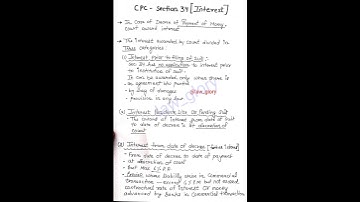 CPC - Section 34 [Interest]
→ In Case of Decree of Payment of Money,
court award interest
→ The interest awarded by court divided in
Three categories :
(1) Interest prior to filing of suit :
Sec 34 has no application to interest prior
to institution of suit
It can be awarded only when there is
an agreement
• by way of damages
• provision in any law
(2) Interest Pendente lite Or Pending Suit
• The award of interest from date of suit
to date of decree is at discretion of
court
(3) Interest from date of decree
• From date of decree to date of payment
• at discretion of court
• Not Max 6%
• where liability arose in Commercial
transaction exceed 6% but not exceed
contractual rate of interest Or money
advanced by Banks in Commercial transaction